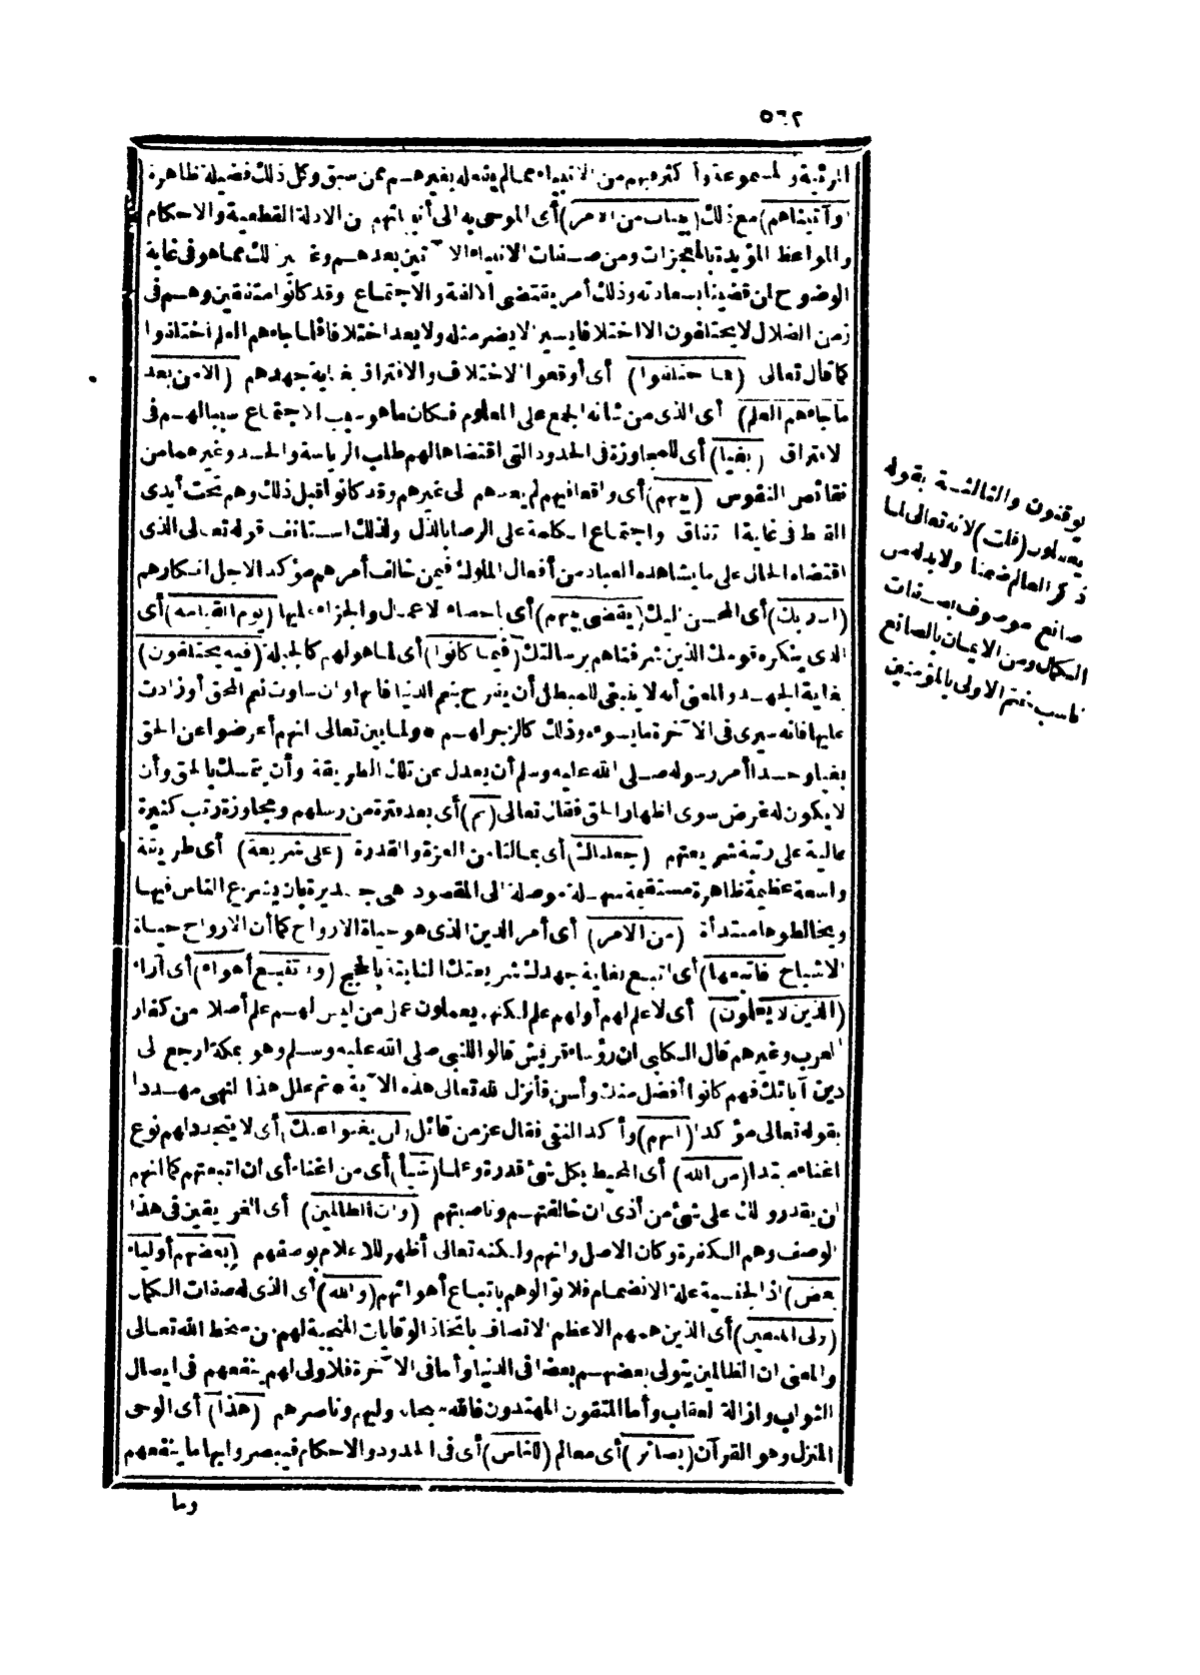 ٥٦٢
المرئية والمسموعة وأكثر فيهم من الانبياء مما لم يفعله بغيرهم ممن سبق وكل ذلك فضيلة ظاهرة
(وآتيناهم) مع ذلك (بينات من الامر) أى الموحى به الى أنبيائهم من الادلة القطعية والاحكام
والمواعظ المؤيدة بالمعجزات ومن صفات الانبياء الآتين بعدهم وغير ذلك مما هو فى غاية
الوضوح لمن قضينا بسعادته وذلك أمر يقتضى الالفة والاجتماع وقد كانوا متفقين وهم فى
زمن الضلال لا يختلفون الا اختلافا يسيرا لا يضر مثله ولا يعد اختلافا فلما جاءهم العلم اختلفوا
كما قال تعالى (فما اختلفوا) أى أوقعوا الاختلاف والافتراق بغاية جهدهم (الا من بعد
ما جاءهم العلم) أى الذى من شأنه الجمع على المعلوم فكان ما هو سبب الاجتماع سببا لهم فى
الافتراق (بغيا) أى للمجاوزة فى الحدود التى اقتضاها لهم طلب الرياسة والحسد وغيرهما من
نقائص النفوس (بينهم) أى واقعا فيهم لم يعدهم الى غيرهم وقد كانوا قبل ذلك وهم تحت أيدى
القبط فى غاية الاتفاق واجتماع الكلمة على الرضا بالذل ولذلك استأنف قوله تعالى الذى
اقتضاه الحال على ما يشاهده العباد من أفعال الملوك فيمن خالف أمرهم مؤكدا لاجل انكارهم
(ان ربك) أى المحسن اليك (يقضى بينهم) أى باحصاء الاعمال والجزاء عليها (يوم القيامة) أى
الذى ينكره قومك الذين شرفناهم برسالتك (فيما كانوا) أى لما هو لهم كالجبلة (فيه يختلفون)
بغاية الجهد والمعنى أنه لا ينبغى للمبطل أن يفرح بنعم الدنيا فانها وان ساوت نعم المحق أو زادت
عليها فانه سيرى فى الآخرة ما يسوءه وذلك كالزجر لهم * ولما بين تعالى انهم أعرضوا عن الحق
بغيا وحسدا أمر رسوله صلى الله عليه وسلم أن يعدل عن تلك الطريقة وأن يتمسك بالحق وأن
لا يكون له غرض سوى اظهار الحق فقال تعالى (ثم) أى بعد فترة من رسلهم ومجاوزة رتب كثيرة
عالية على رتبة شريعتهم (جعلناك) أى بما لنا من العزة والقدرة (على شريعة) أى طريقة
واسعة عظيمة ظاهرة مستقيمة سهلة موصلة الى المقصود هى جديرة بان يشرع الناس فيها
ويخالطوها مبتدأة (من الامر) أى أمر الدين الذى هو حياة الارواح كما أن الارواح حياة
الاشباح (فاتبعها) أى اتبع بغاية جهدك شريعتك الثابتة بالحجج (ولا تتبع أهواء) أى آراء
(الذين لا يعلمون) أى لا علم لهم أو لهم علم لكنهم يعملون عمل من ليس لهم علم أصلا من كفار
العرب وغيرهم قال الكلبى ان رؤساء قريش قالوا للنبى صلى الله عليه وسلم وهو بمكة ارجع الى
دين آبائك فهم كانوا أفضل منك وأسن فأنزل الله تعالى هذه الآية * ثم علل هذا النهى مهددا
بقوله تعالى مؤكدا (انهم) وأكد النفى فقال عز من قائل (لن يغنوا عنك) أى لا يتجدد لهم نوع
اغناء مبتدا (من الله) أى المحيط بكل شئ قدرة وعلما (شيأ) أى من اغناء أى ان اتبعتهم كما انهم
لن يقدروا لك على شئ من أذى ان خالفتهم وناصبتهم (وان الظالمين) أى الغريقين فى هذا
الوصف وهم الكفرة وكان الاصل وانهم ولكنه تعالى أظهر للاعلام بوصفهم (بعضهم أولياء
بعض) اذ الجنسية علة الانضمام فلا توالوهم باتباع أهوائهم (والله) أى الذى له صفات الكمال
(ولى المتقين) أى الذين همهم الاعظم الاتصاف باتخاذ الوقايات المنجية لهم من سخط الله تعالى
والمعنى ان الظالمين يتولى بعضهم بعضا فى الدنيا وأما فى الآخرة فلا ولى لهم ينفعهم فى ايصال
الثواب وازالة العقاب وأما المتقون المهتدون فالله سبحانه وليهم وناصرهم (هذا) أى الوحى
المنزل وهو القرآن (بصائر) أى معالم (للناس) أى فى الحدود والاحكام فيبصروا بها ما ينفعهم
وما
يوقنون والثالثة بقوله
يعقلون (قلت) لانه تعالى لما
ذكر العالم ضمنا ولا بد له من
صانع موصوف بصفات
الكمال ومن الايمان بالصانع
ناسب ختم الاولى بالمؤمنين